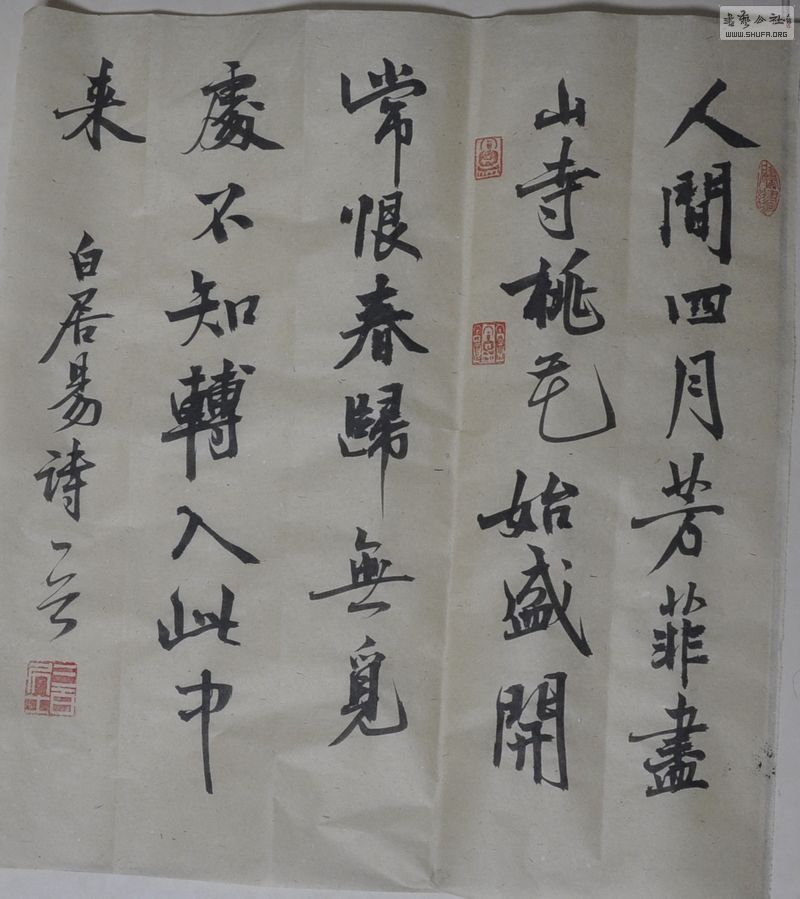 人間四月芳菲盡
山寺桃花始盛開
常恨春歸無覓
處不知轉入此中
来
白居易詩
书艺公社
WWW.SHUFA.ORG